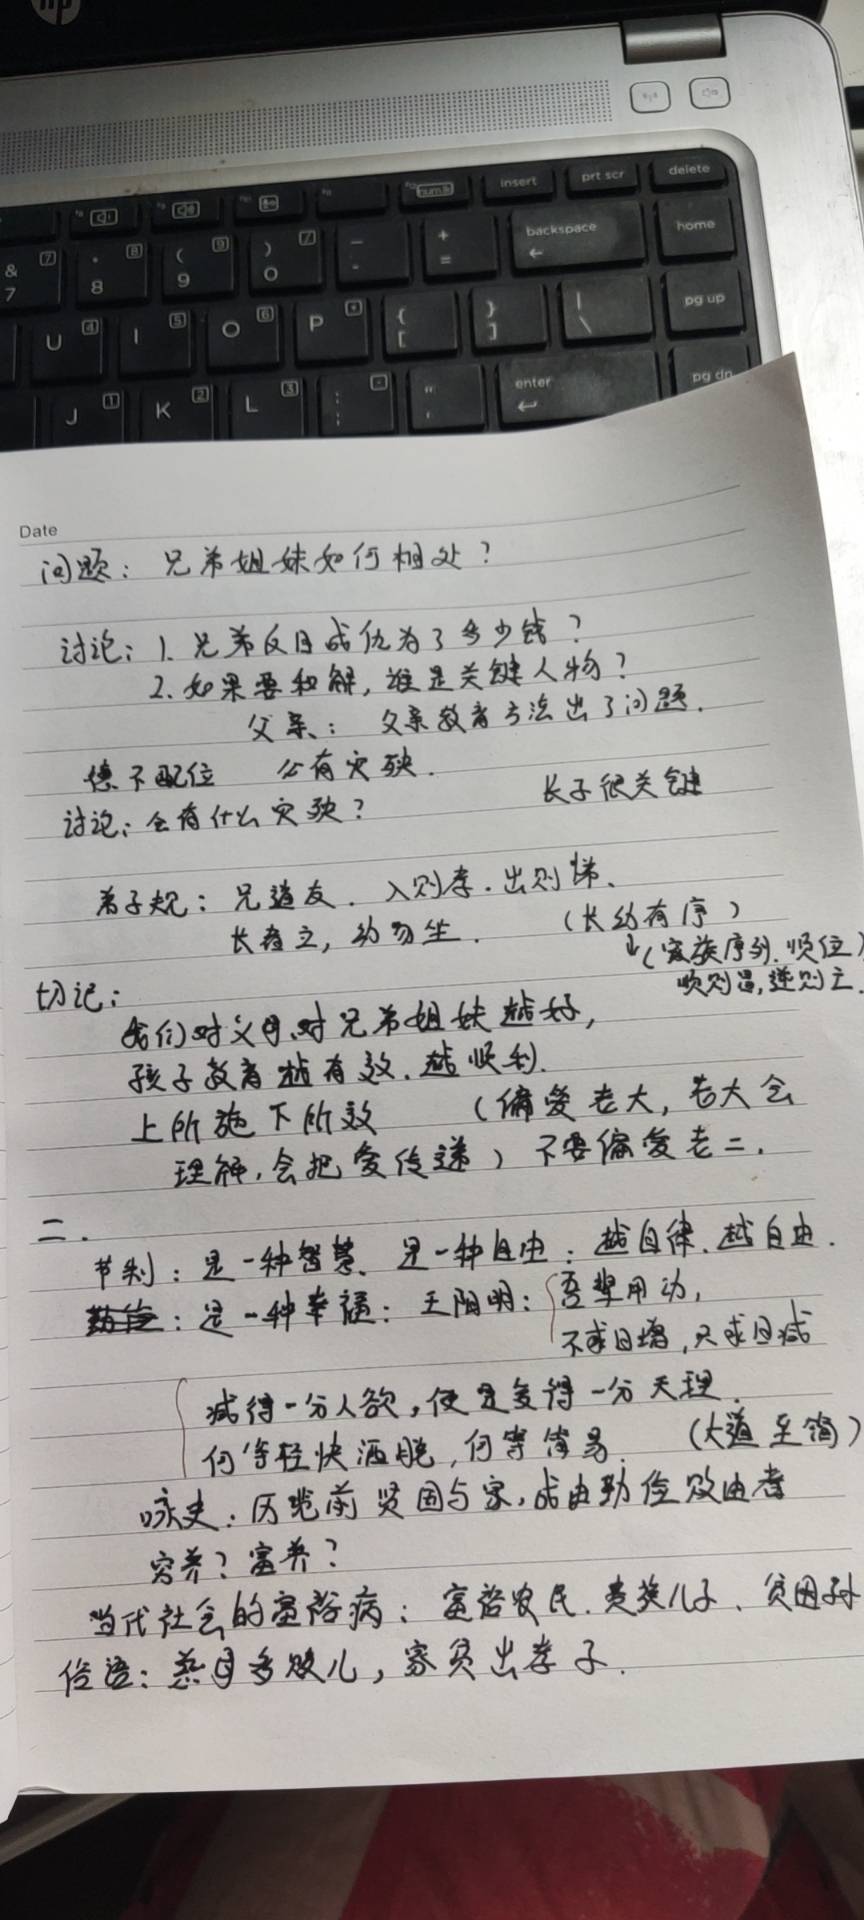 hp
insert
prt scr
delete
num lk
& 7
* 8
( 9
) 0
- 
+ =
backspace
home
U 4
I 5
O 6
P *
{ [
} ]
| \
pg up
J 1
K 2
L 3
: ;
" '
enter
pg dn
Date
问题：兄弟姐妹如何相处？
讨论：1. 兄弟反目成仇为了多少钱？
2. 如果要和解，谁是关键人物？
父亲：父亲教育方法出了问题.
德不配位 必有灾殃.
长子很关键
讨论：会有什么灾殃？
弟子规：兄道友. 入则孝. 出则悌、
长者立，幼勿坐. （长幼有序）
↓（家族序列. 顺位）
顺则昌，逆则亡.
切记：
我们对父母、对兄弟姐妹越好，
孩子教育越有效. 越顺利.
上所施下所效 （偏爱老大，老大会
理解，会把爱传递）不要偏爱老二.
二.
节制：是一种智慧、是一种自由：越自律、越自由.
勤俭：是一种幸福：王阳明：吾辈用功，
不求日增，只求日减
减得一分人欲，便是复得一分天理.
何等轻快洒脱，何等简易. （大道至简）
咏史：历览前贤国与家，成由勤俭败由奢
穷养？富养？
当代社会的富裕病：富裕农民、贵族儿子、贫困孙
俗语：慈母多败儿，家贫出孝子.